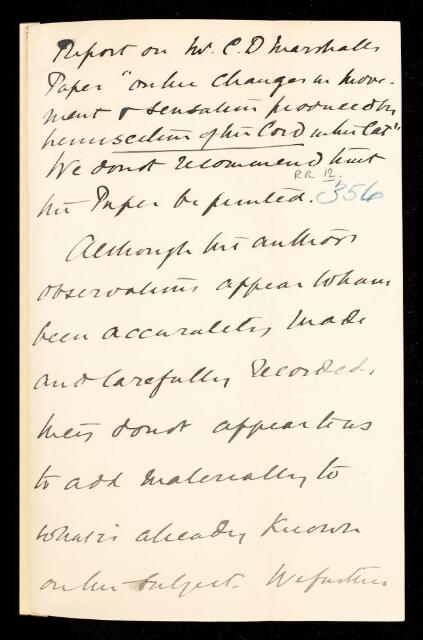 Report on Mr. C. D Marshalls
Paper "on the changes in move-
ment & sensation produced by
hemisection of the Cord in the Cat"
We do not recommend that
RR 12.
the Paper be printed. 356
Although the authors
observations appear to have
been accurately made
and carefully recorded,
they do not appear to us
to add materially to
what is already known
on the subject. We further